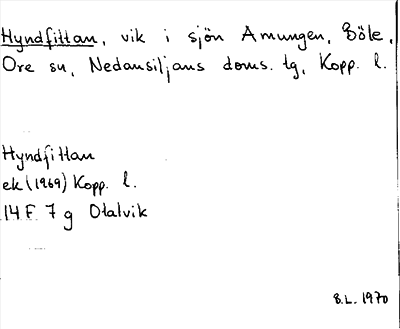 Hyndfittan, vik i sjön Amungen, Böle,
Ore sn, Nedansiljans doms. tg, Kopp. l.
Hyndfittan
ek (1969) Kopp. l.
14 F 7 g Otalvik
B.L. 1970